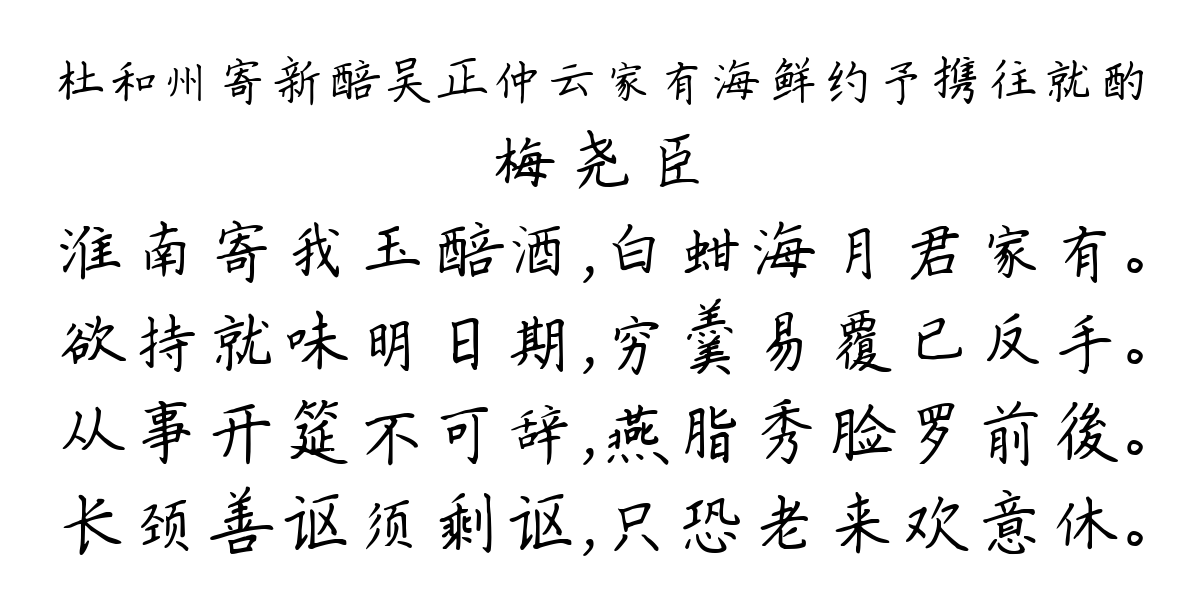 杜和州寄新醅吴正仲云家有海鲜约予携往就酌
梅尧臣
淮南寄我玉醅酒,白蚶海月君家有。
欲持就味明日期,穷羹易覆已反手。
从事开筵不可辞,燕脂秀脸罗前後。
长颈善讴须剩讴,只恐老来欢意休。